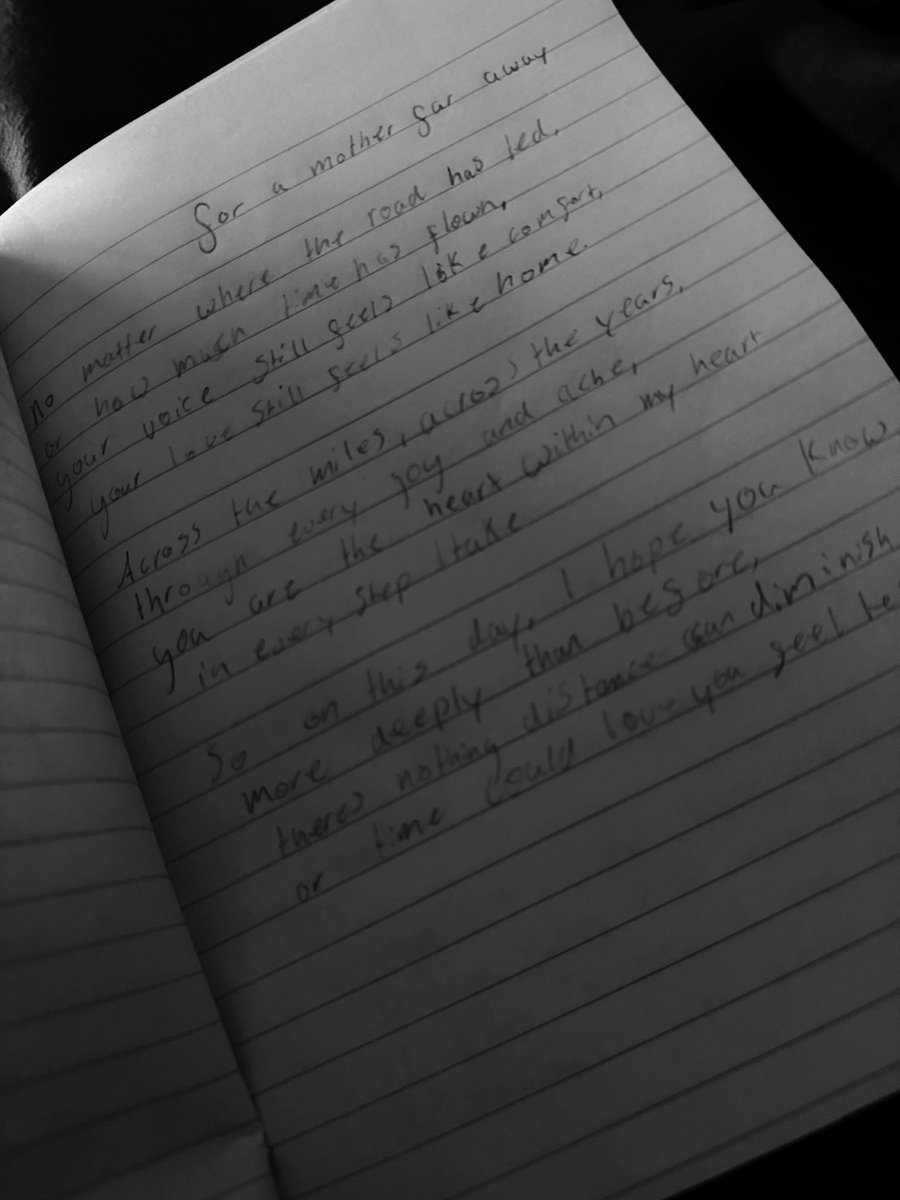 for a mother far away
no matter where the road has led,
or how much time has flown,
your voice still feels like comfort,
your love still feels like home.
Across the miles, across the years,
through every joy and ache,
you are the heart within my heart
in every step I take
So on this day, I hope you know
more deeply than before,
theres nothing distance can diminish
or time could love you feel